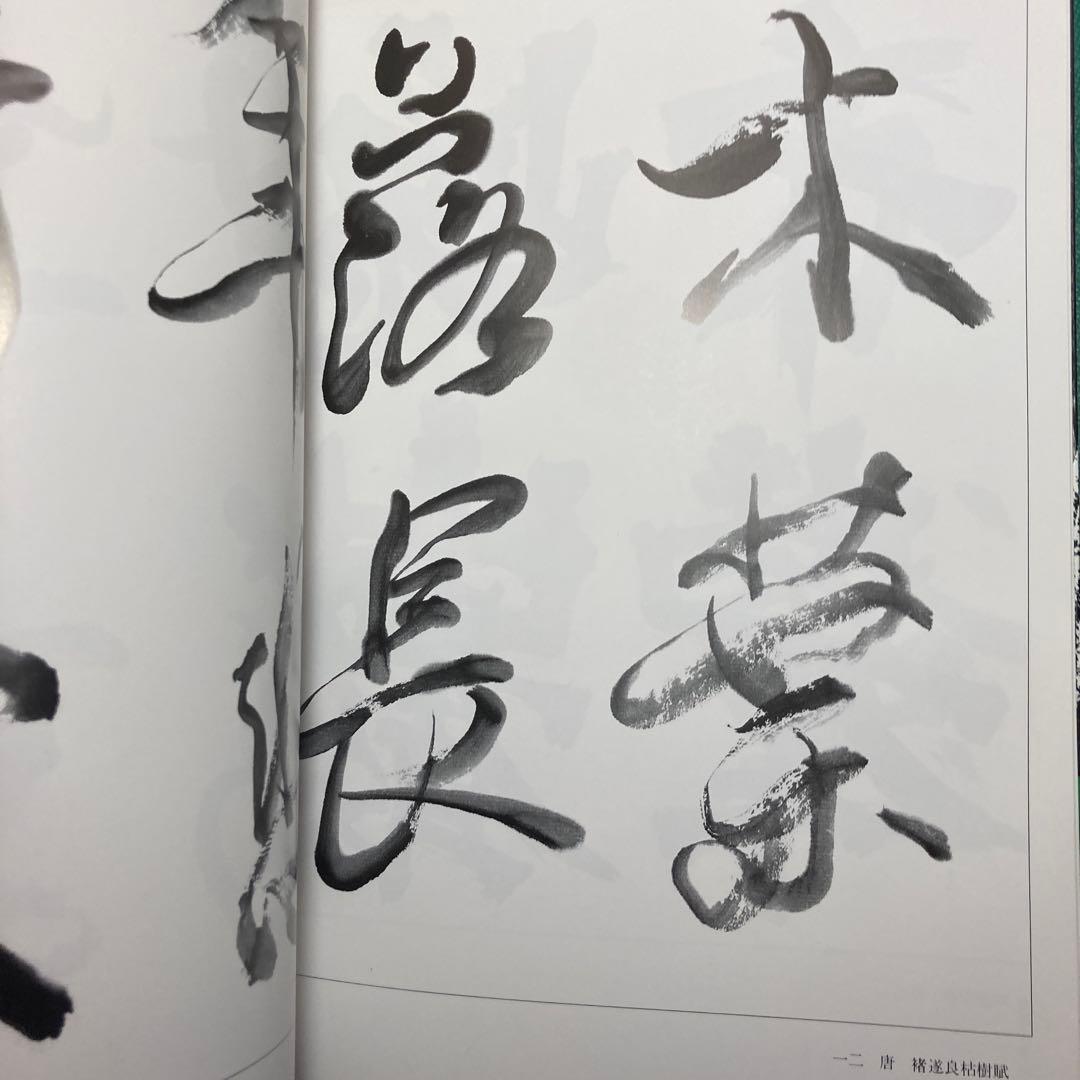 木葉
落長
一二 唐 褚遂良枯樹賦